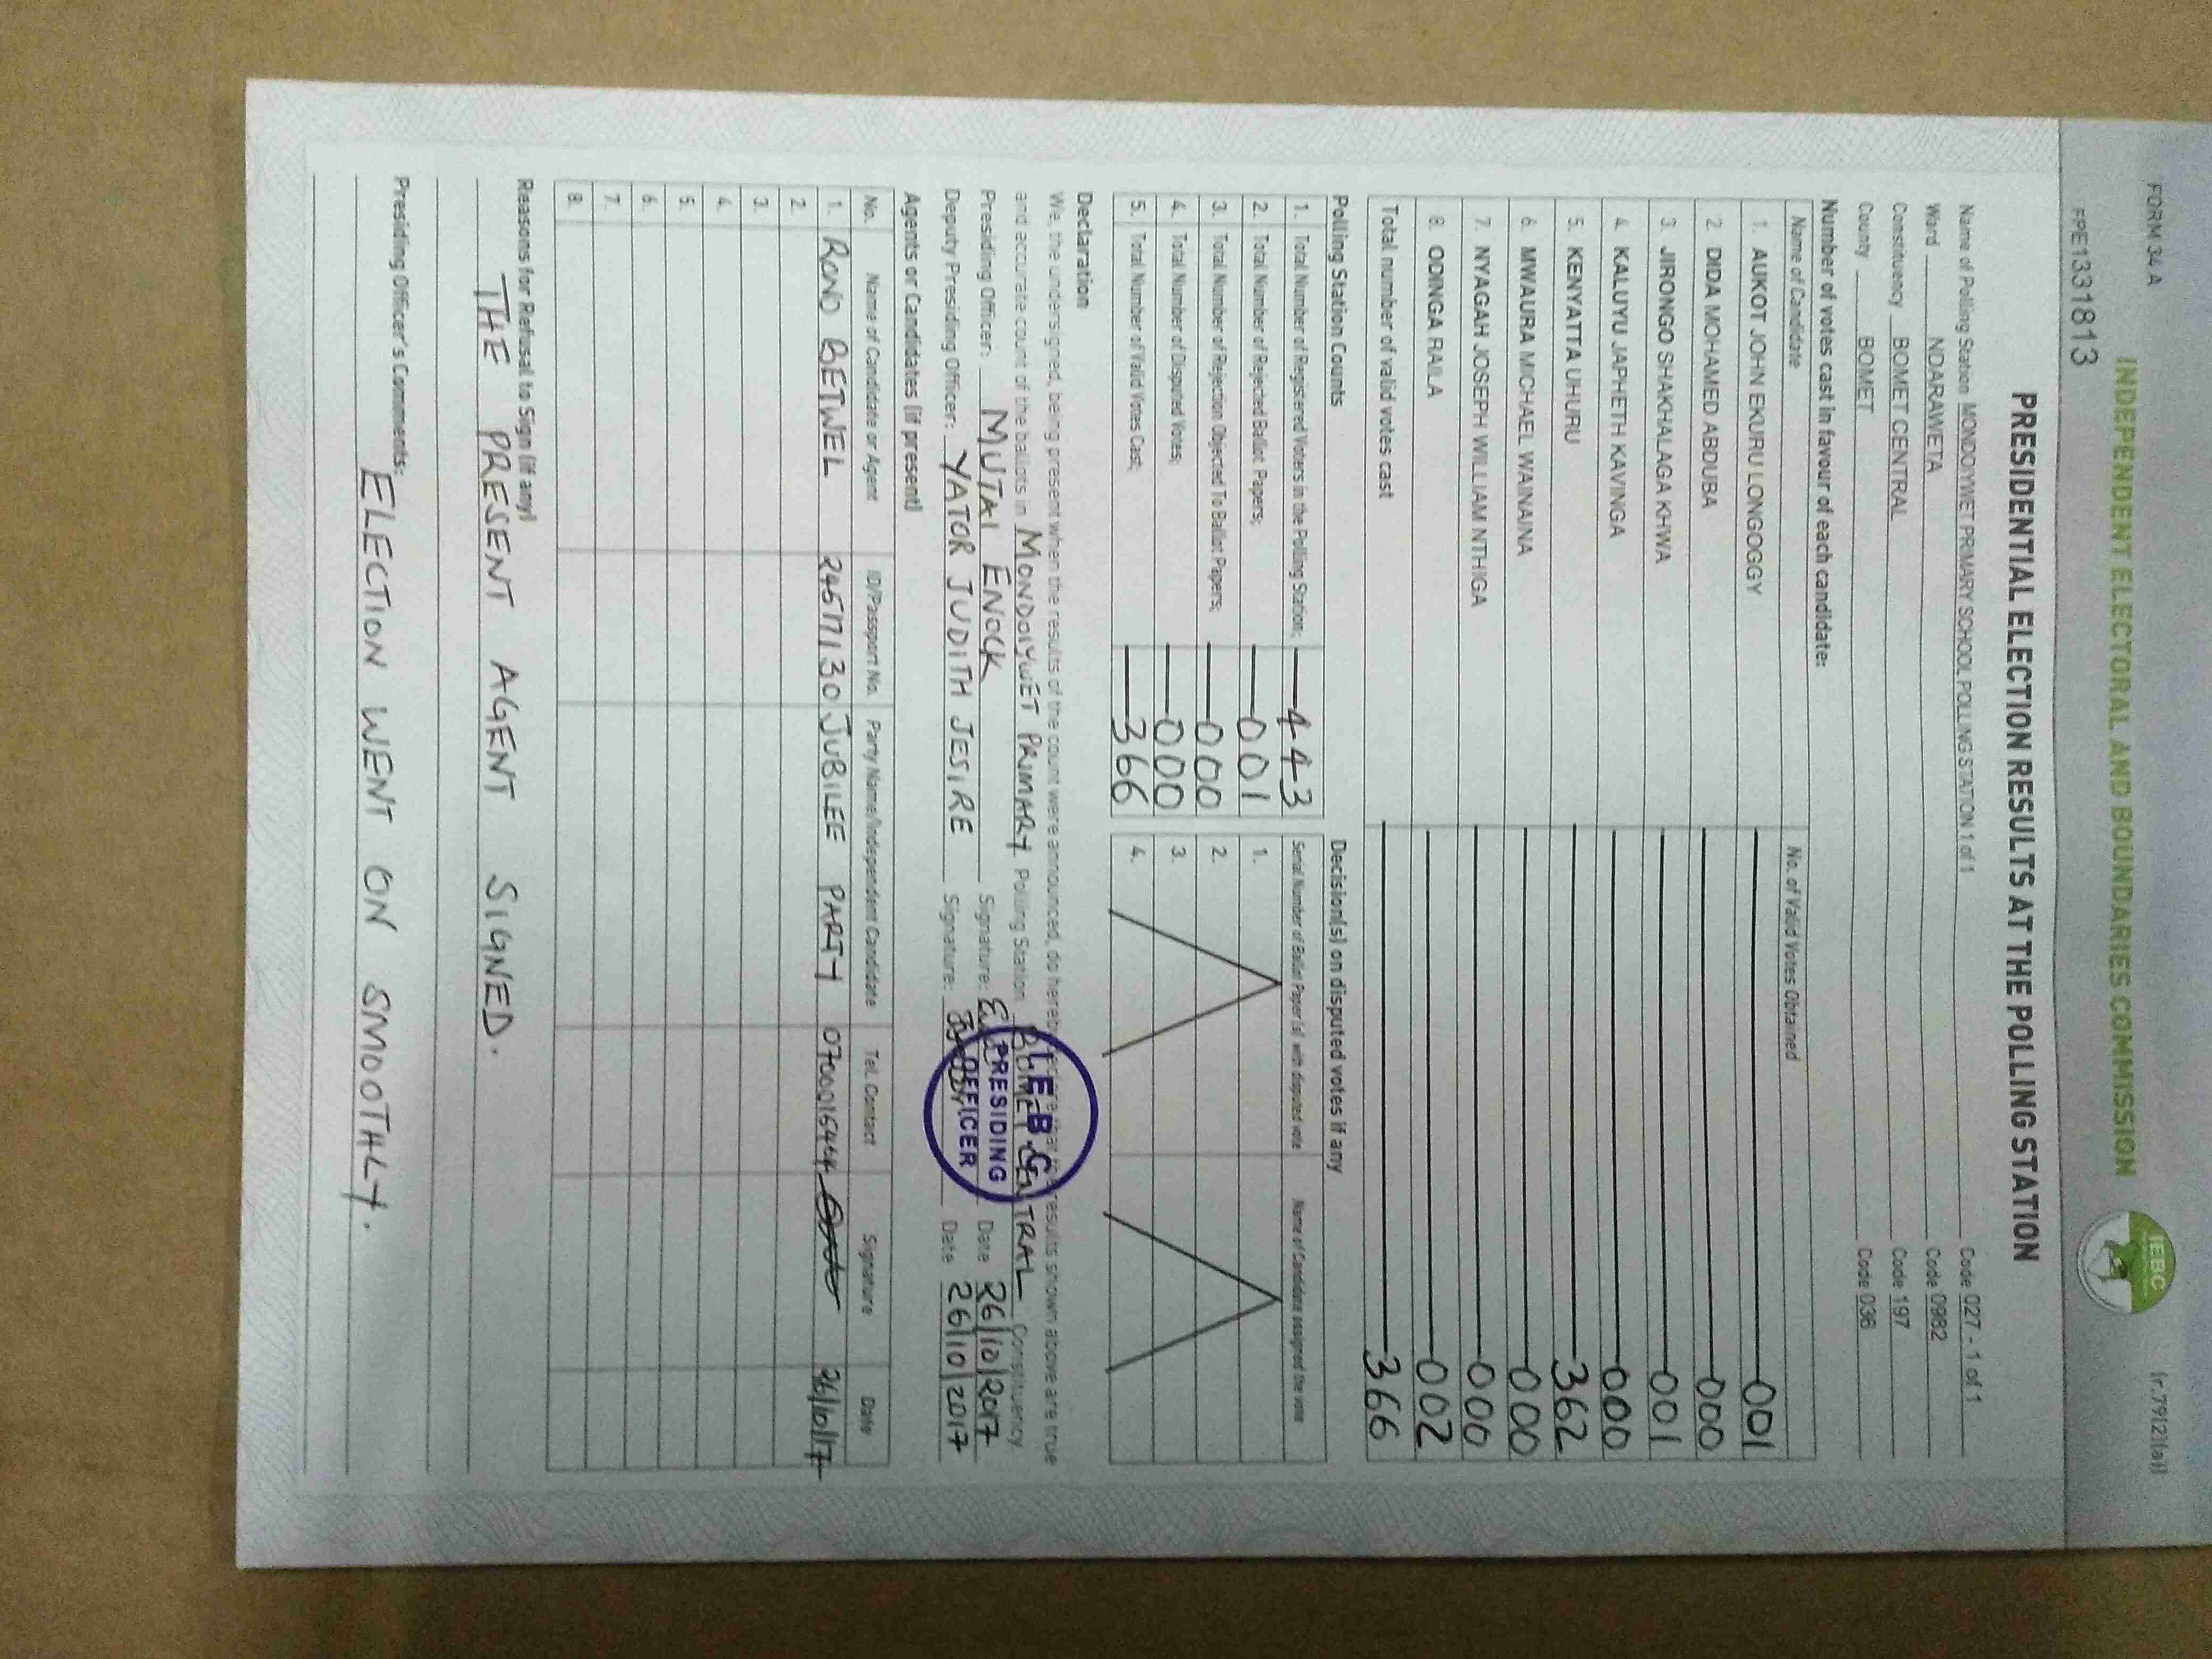 FORM 34 A
PPE1331813
INDEPENDENT ELECTORAL AND BOUNDARIES COMMISSION
IEBC
PRESIDENTIAL ELECTION RESULTS AT THE POLLING STATION
Name of Polling Station MONDOIYWET PRIMARY SCHOOL POLLING STATION 1 of 1 Code 027 - 1 of 1
Ward NDARAWETA Code 0982
Constituency BOMET CENTRAL Code 197
County BOMET Code 036
Number of votes cast in favour of each candidate:
Name of Candidate No. of Valid Votes Obtained
1. AUKOT JOHN EKURU LONGOGGY 001
2. DIDA MOHAMED ABDUBA 000
3. JIRONGO SHAKHALAGA KHWA 001
4. KALUYU JAPHETH KAVINGA 000
5. KENYATTA UHURU 362
6. MWAURA MICHAEL WAINAINA 000
7. NYAGAH JOSEPH WILLIAM NTHIGA 000
8. ODINGA RAILA 002
Total number of valid votes cast 366
Polling Station Counts Decision(s) on disputed votes if any
1. Total Number of Registered Voters in the Polling Station; 443 Serial Number of Ballot Paper(s) with disputed vote Name of Candidate assigned the vote
2. Total Number of Rejected Ballot Papers; 001 1.
3. Total Number of Rejection Objected To Ballot Papers; 000 2.
4. Total Number of Disputed Votes; 000 3.
5. Total Number of Valid Votes Cast; 366 4.
Declaration
We, the undersigned, being present when the results of the count were announced, do hereby results shown above are true
and accurate count of the ballots in MONDOIYWET PRIMARY Polling Station BOMET CENTRAL Constituency
Presiding Officer: MUTAI ENOCK Signature: Date 26/10/2017
Deputy Presiding Officer: YATOR JUDITH JESIRE Signature: Date 26/10/2017
I.E.B.C
PRESIDING
OFFICER
Agents or Candidates (if present)
No. Name of Candidate or Agent ID/Passport No. Party Name/Independent Candidate Tel. Contact Signature Date
1. RONO BETWEL 24517130 JUBILEE PARTY 26/10/17
2.
3.
4.
5.
6.
7.
8.
Reasons for Refusal to Sign (if any)
THE PRESENT AGENT SIGNED.
Presiding Officer's Comments: ELECTION WENT ON SMOOTHLY.